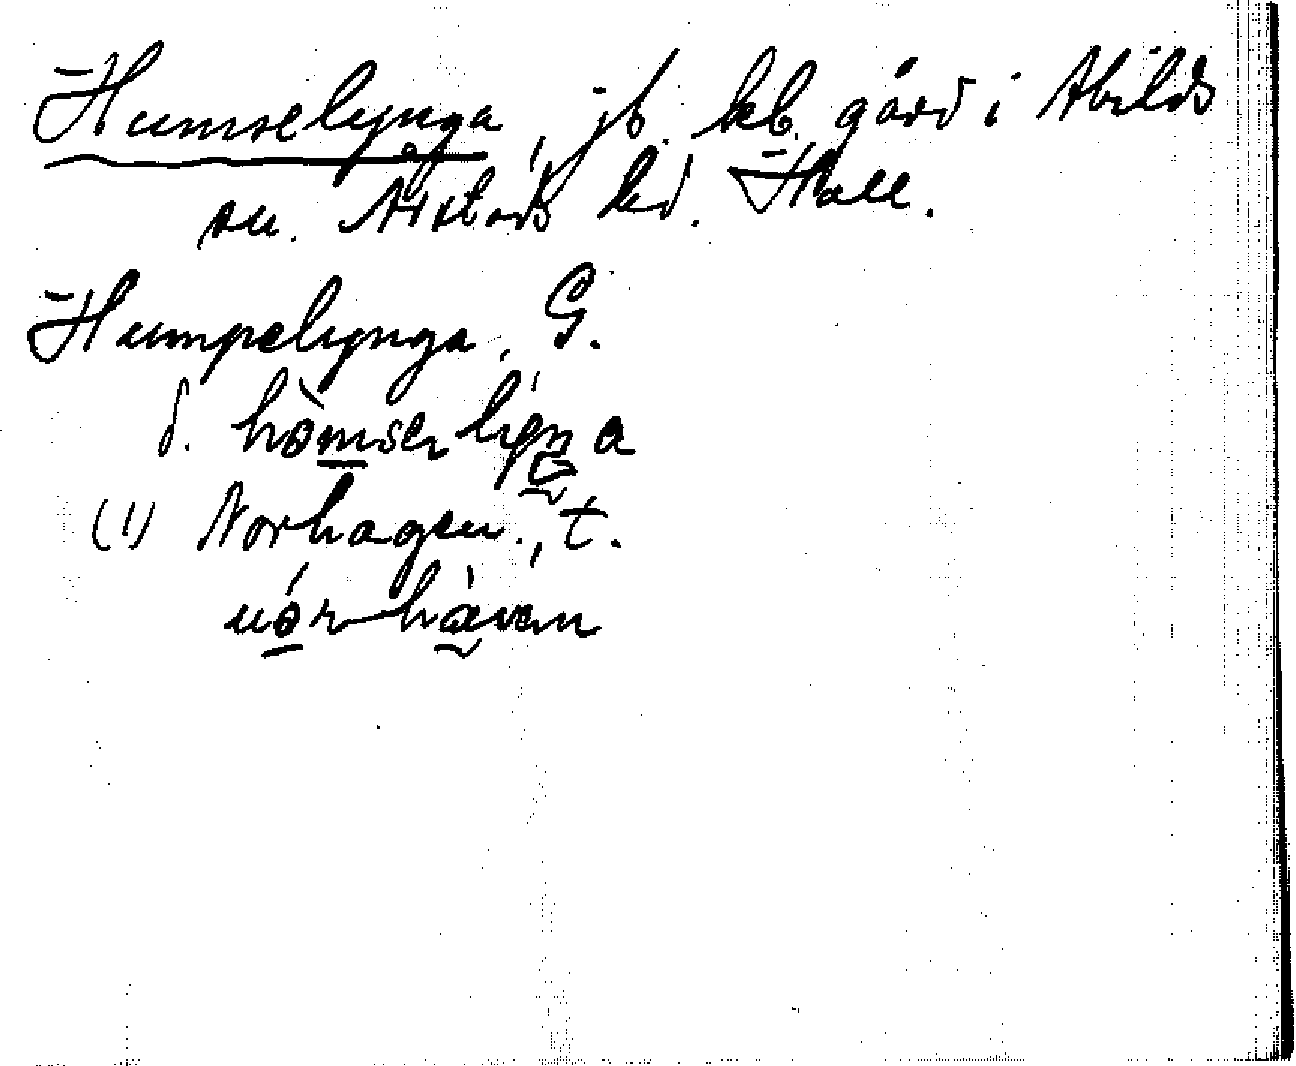 Humselynga, jb. kb. gård i Abilds
sn. Årstads hd. Hall.
Humpelynga, G.
d. hòmsər lyŋa
(1) Norhagen., t.
nórhàvən